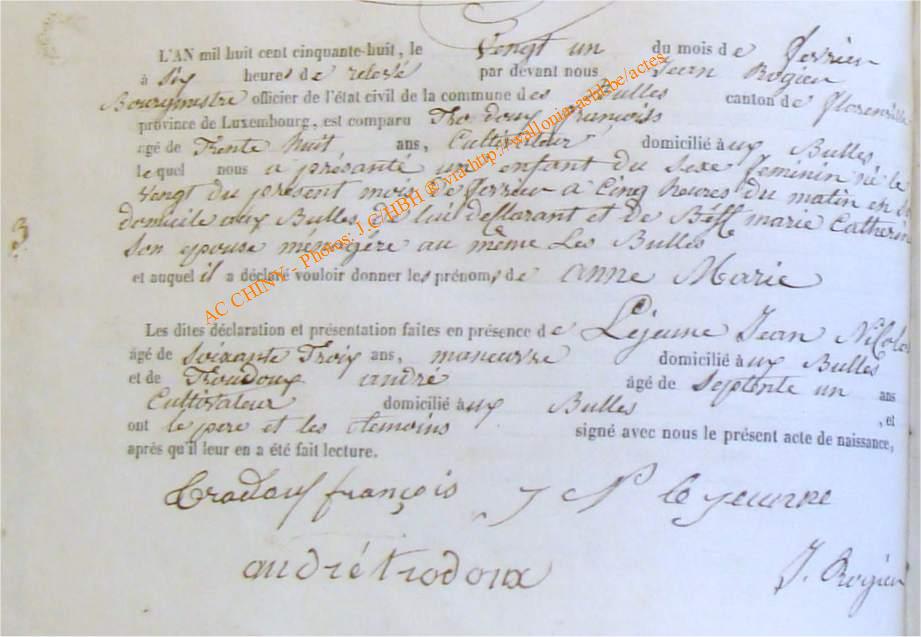 L'AN mil huit cent cinquante-huit, le Vengt un du mois de fevrier
à Six heures de relevé par devant nous Jean Rogier
Bourgmestre officier de l'état civil de la commune des Bulles canton de florenville
province de Luxembourg, est comparu Trodoux françois
agé de Trente huit ans, Cultivateur domicilié aux Bulles
lequel nous a présanté un enfant du sexe feminin né le
Vengt du present mois de fevrier a Cinq heures du matin en
domicile aux Bulles de lui desclarant et de marie Catherine
Son epouse ménagére au même Les Bulles
et auquel il a déclaré vouloir donner les prénoms de anne Marie
3
Les dites déclaration et présentation faites en présence de Lejeune Jean Nicolas
âgé de Soixante Troix ans, maneuvre domicilié aux Bulles
et de Troudoux andré âgé de Septente un ans
Cultivateur domicilié aux Bulles , et
ont le pere et les temoins signé avec nous le présent acte de naissance,
après qu'il leur en a été fait lecture.
trodoux françois J N le jeunne
andré trodoux J. Rogier
AC CHINY - Photos: J.C/HBH @ via http://wallonia-asbl.be/actes